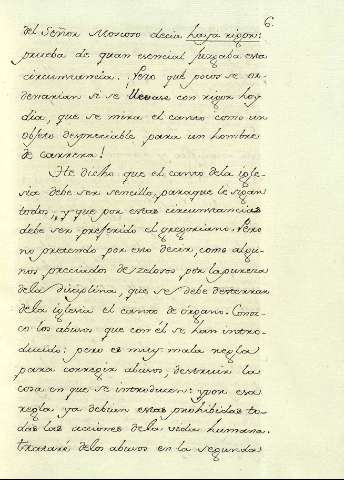 6.
del Señor Moscoso decia haya rigor:
prueba de quan esencial juzgaba esta
circunstancia. ¡Pero qué pocos se or-
denarian si se llevase con rigor hoy
dia, que se mira el canto como un
objeto despreciable para un hombre
de carrera!
He dicho que el canto dela igle-
sia debe ser sencillo, paraque le sigan
todos, y que por estas circunstancias
debe ser preferido el gregoriano. Pero
no pretendo por eso decir, como algu-
nos preciados de zelosos por la pureza
de la disciplina, que se debe desterrar
de la iglesia el canto de organo. Conoz-
co los abusos que con él se han intro-
ducido: pero es muy mala regla
para corregir abusos, destruir la
cosa en que se introducen: ypor esa
regla ya debian estar prohibidas to-
das las acciones de la vida humana.
trataré delos abusos en la segunda